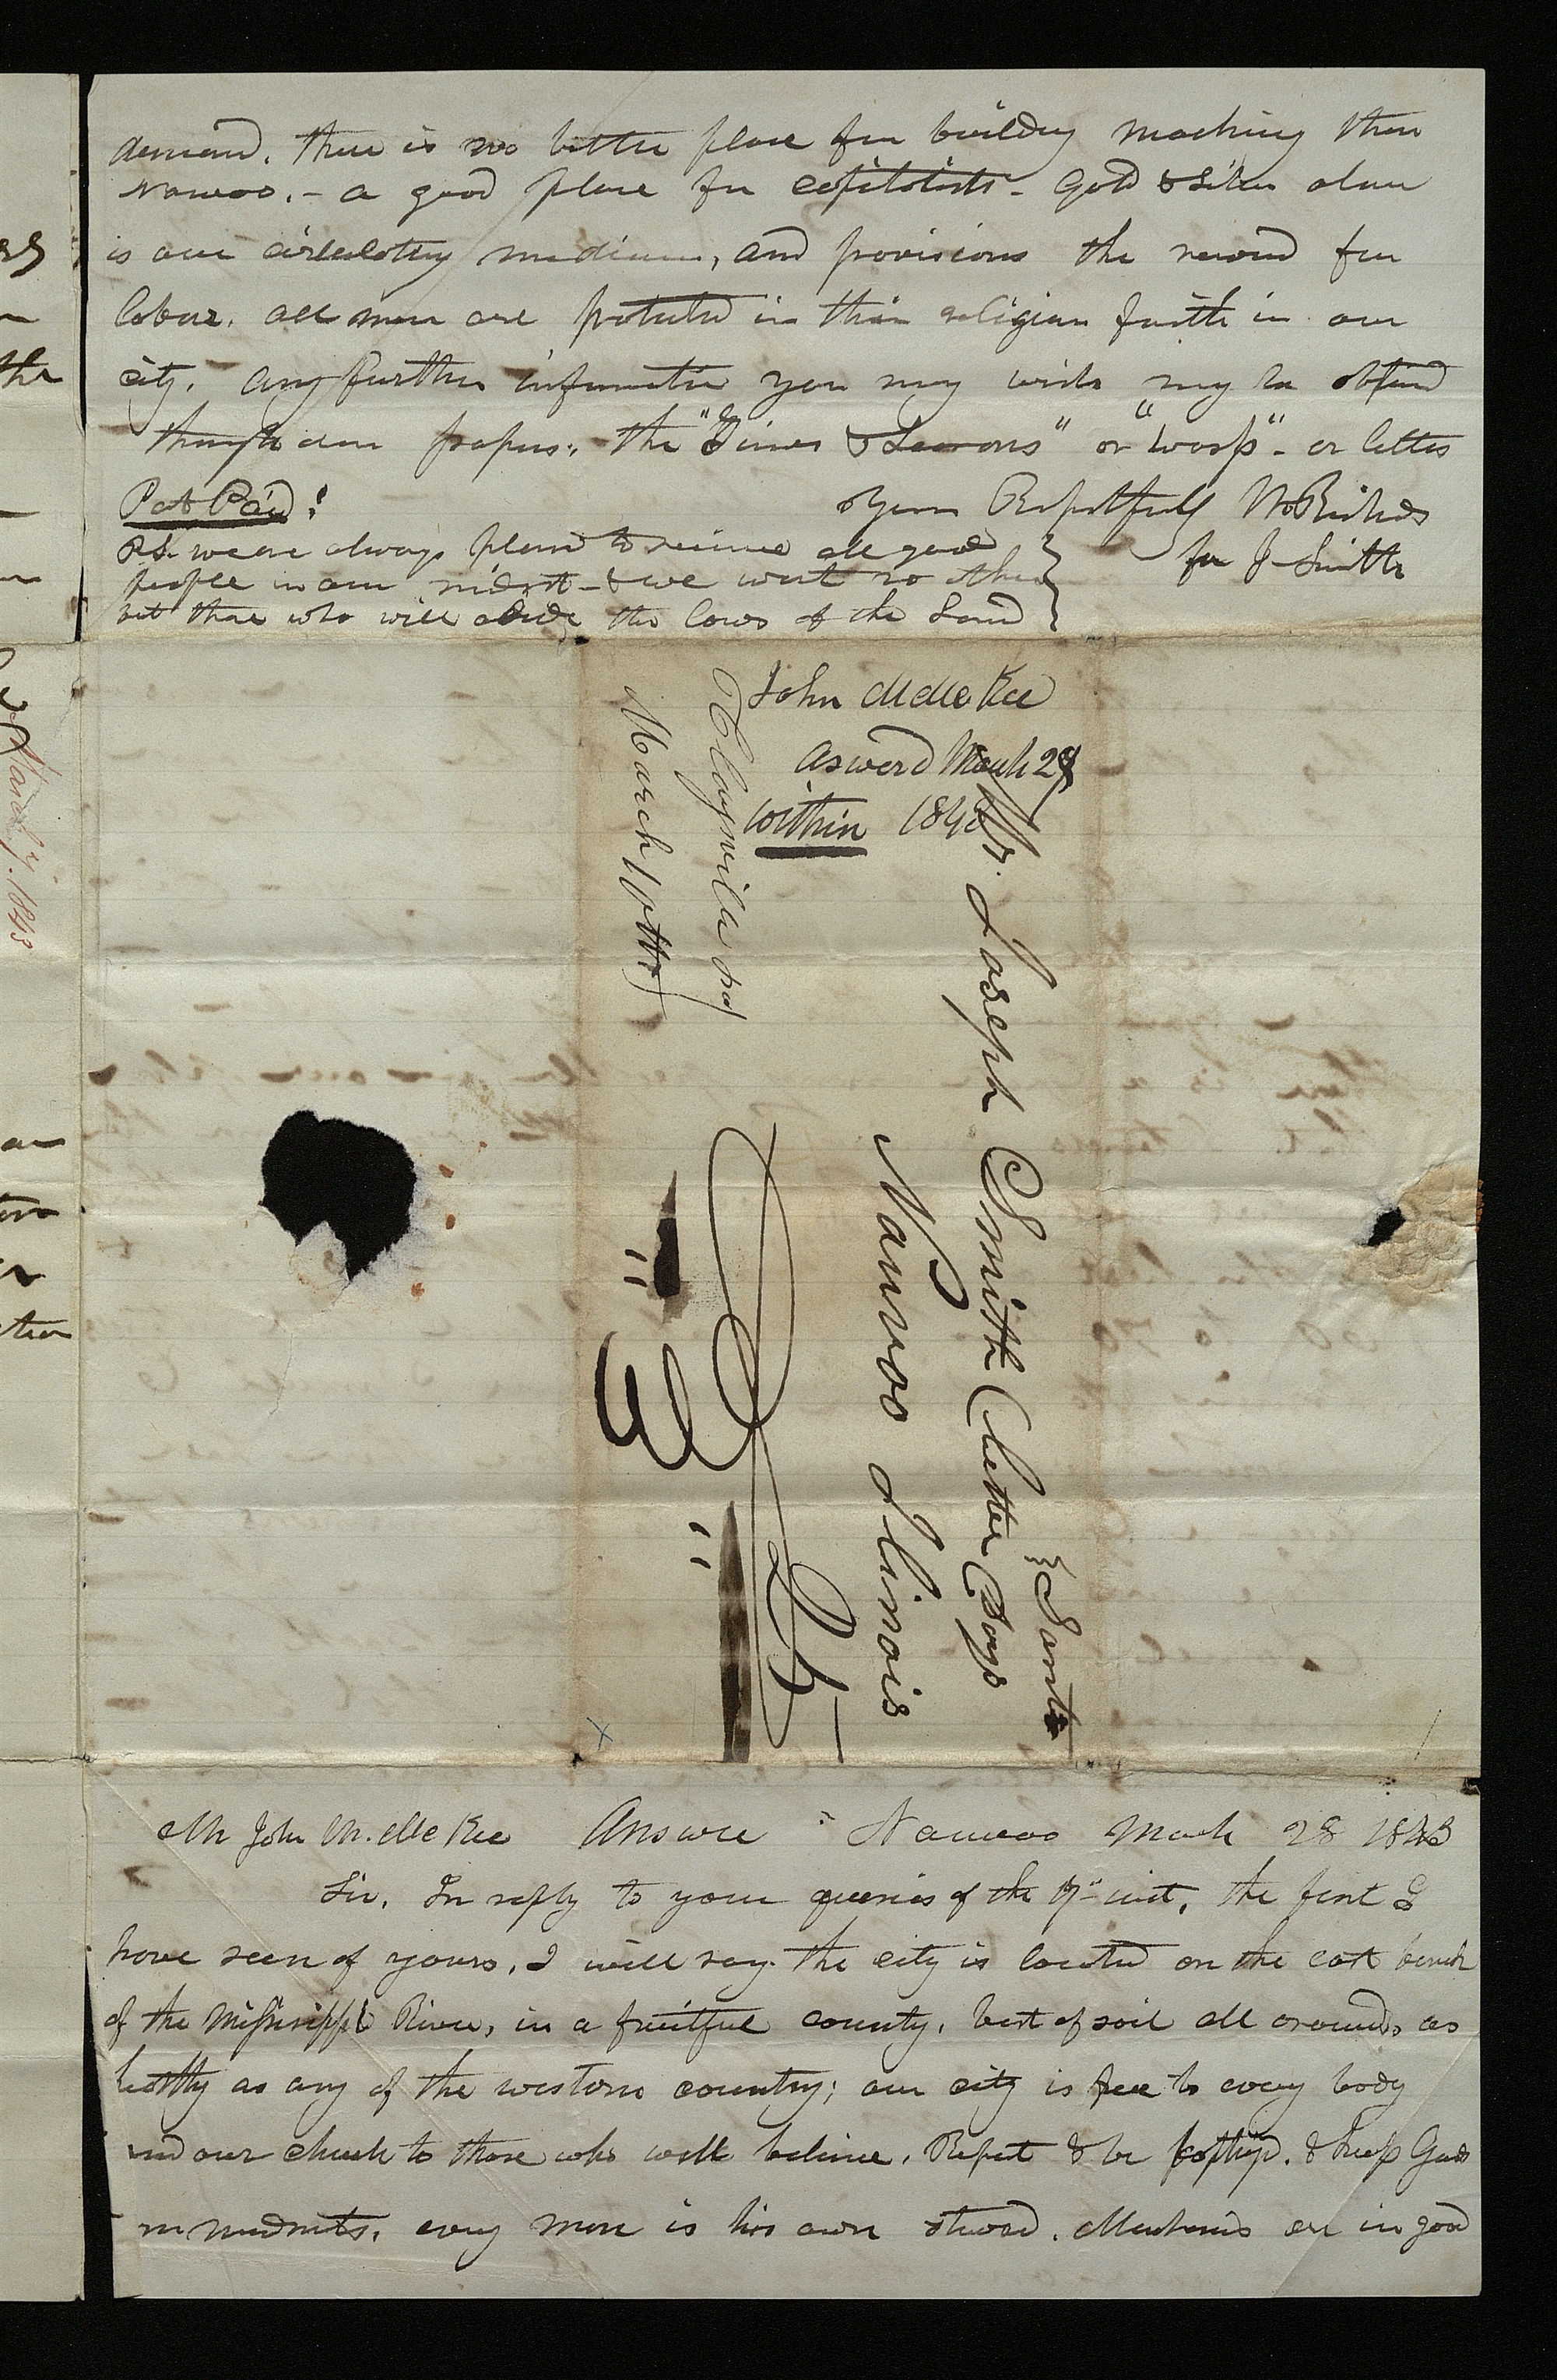 demand. there is no better place for building machiney than
Nauvoo. - a good place for capitolists - Gold & Silver alone
is our circulating medium, and provisions the reward for
labour. all men are protected in their religious faith in our
city. any further information you may wish may be obtaind
through our papers; the "Times & Seasons" or "Wasp" - or letters
Post Paid! yours Respectfully W Richards
for J Smith
P.S. we are always pleased to receive all good
people in our midst - & we want no other
but those who will abide the laws of the Land
John M McKee
answerd March 28
within 1843
Claysville Pa
March 10th
Mr. Joseph Smith Latter Days
Saints
Nauvoo Ilinois
25
March 7. 1843
Mr John M. McKee Answer Nauvoo March 28 1843
Sir, In reply to your queries of the 7" inst, the first I
have seen of yours, I will say the city is located on the east bank
of the Missisippi River, in a fruitful county, best of soil all around, as
helthy as any of the western country; our city is free to every body
and our church to those who will believe, Repent & be baptizd. & keep Gods
mmndmnts, every man is his own steward. Mechanics are in good